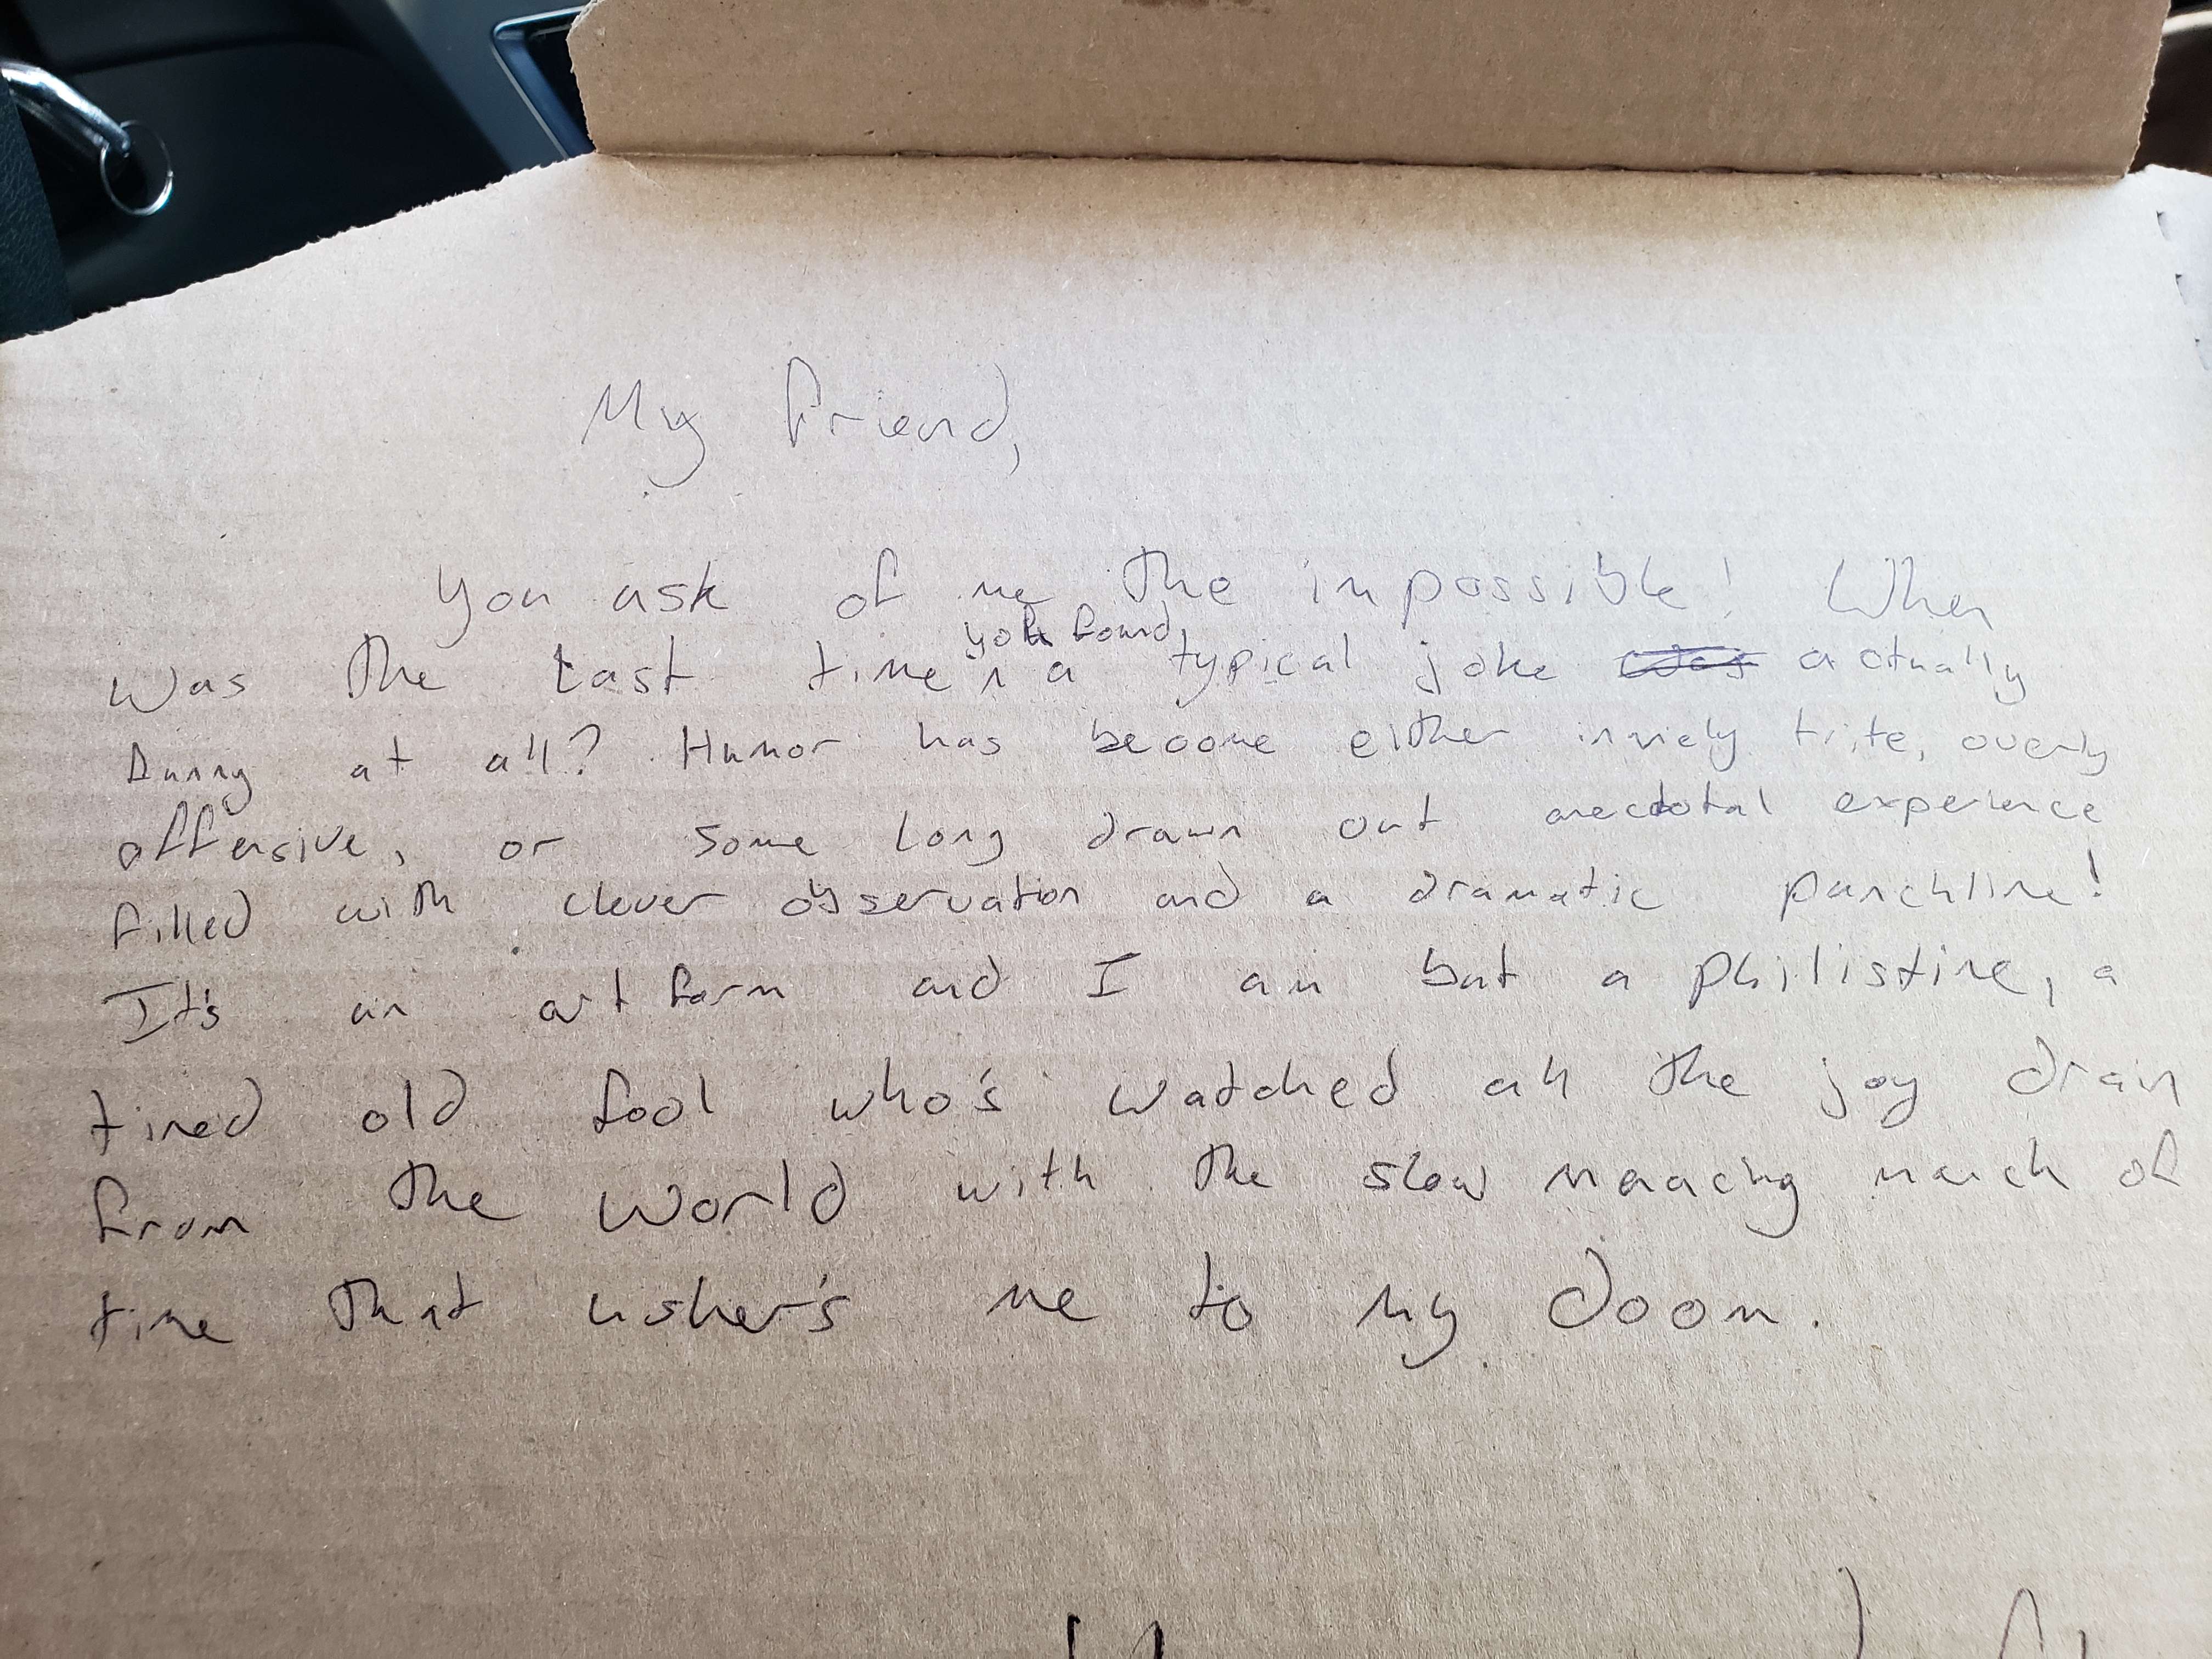 My friend,
You ask of me the impossible! When
you found
was the last time a typical joke was actually
funny at all? Humor has become either inanely trite, overly
offensive, or some long drawn out anecdotal experience
filled with clever observation and a dramatic punchline!
It's an art form and I am but a philistine, a
tired old fool who's watched all the joy drain
from the world with the slow march of
time that usher's me to my doom.